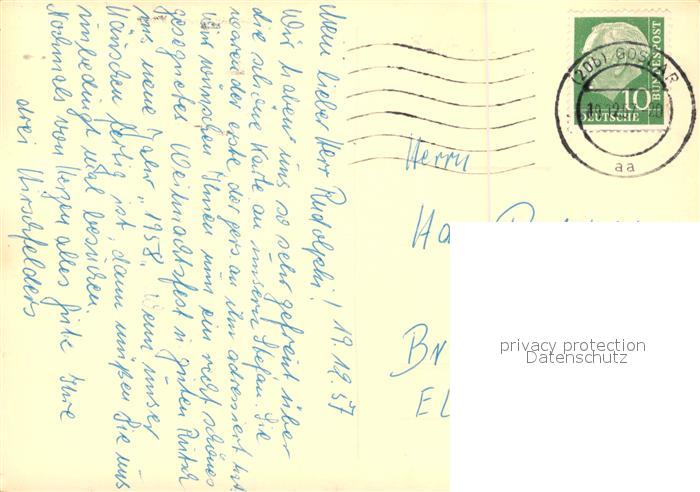 Mein lieber Herr Rudolphi! 19.12.57
Wir haben uns so sehr gefreut über
die schöne Karte an unseren Stefan. Sie
waren der erste, der pers. an ihn adressiert hat.
Wir wünschen Ihnen nun ein recht schönes
gesegnetes Weihnachtsfest u. guten Rutsch
ins neue Jahr "1958". Wenn unser
Häuschen fertig ist, dann müssen Sie uns
unbedingt mal besuchen.
Nochmals von Herzen alles Gute Ihre
drei Hirschfelders
(20b) GOSLAR
aa
10
DEUTSCHE
BUNDESPOST
Herrn
privacy protection
Datenschutz